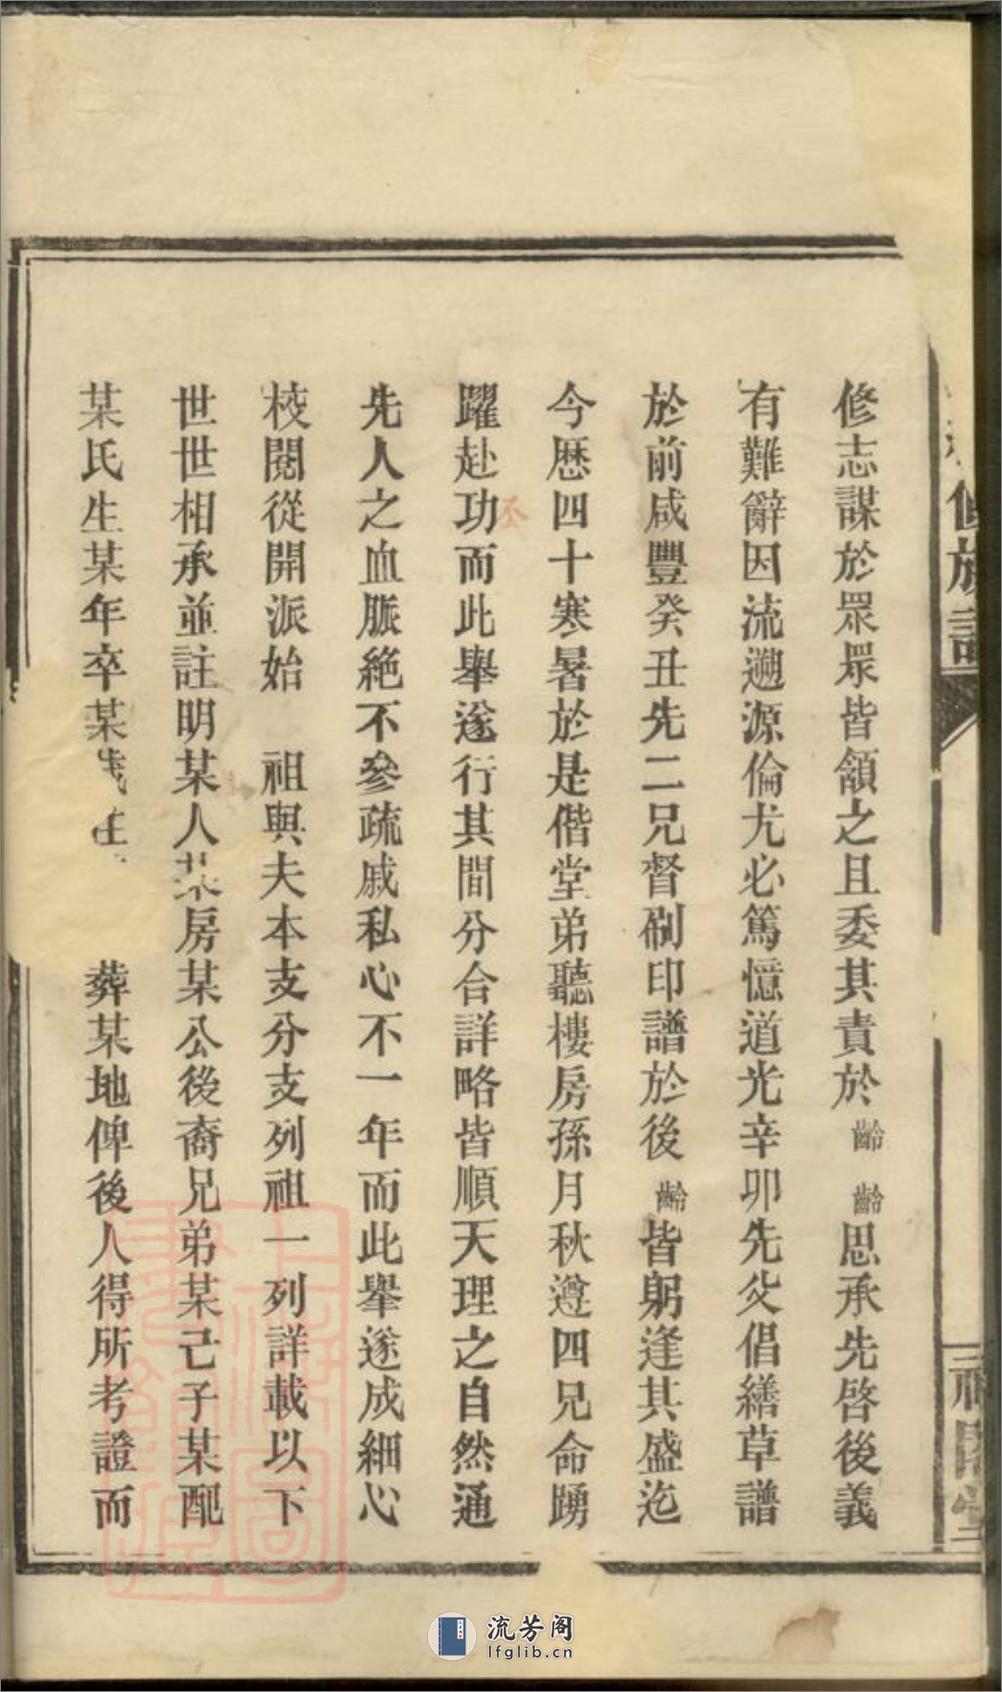 修志謀於眾眾皆頷之且委其責於齡齡思承先啓後義
有難辭因流遡源倫尤必篤憶道光辛卯先父倡繕草譜
於前咸豐癸丑先二兄督刷印譜於後齡皆躬逢其盛迄
今歷四十寒暑於是偕堂弟聽樓房孫月秋遵四兄命踴
躍赴功而此舉遂行其間分合詳略皆順天理之自然通
先人之血脈絕不參疏戚私心不一年而此舉遂成細心
校閱從開派始　祖與夫本支分支列祖一列詳載以下
世世相承並註明某人某房某公後裔兄弟某己子某配
某氏生某年卒某　葬某地俾後人得所考證而
修族譜
上海圖書館藏
流芳阁
lfglib.cn